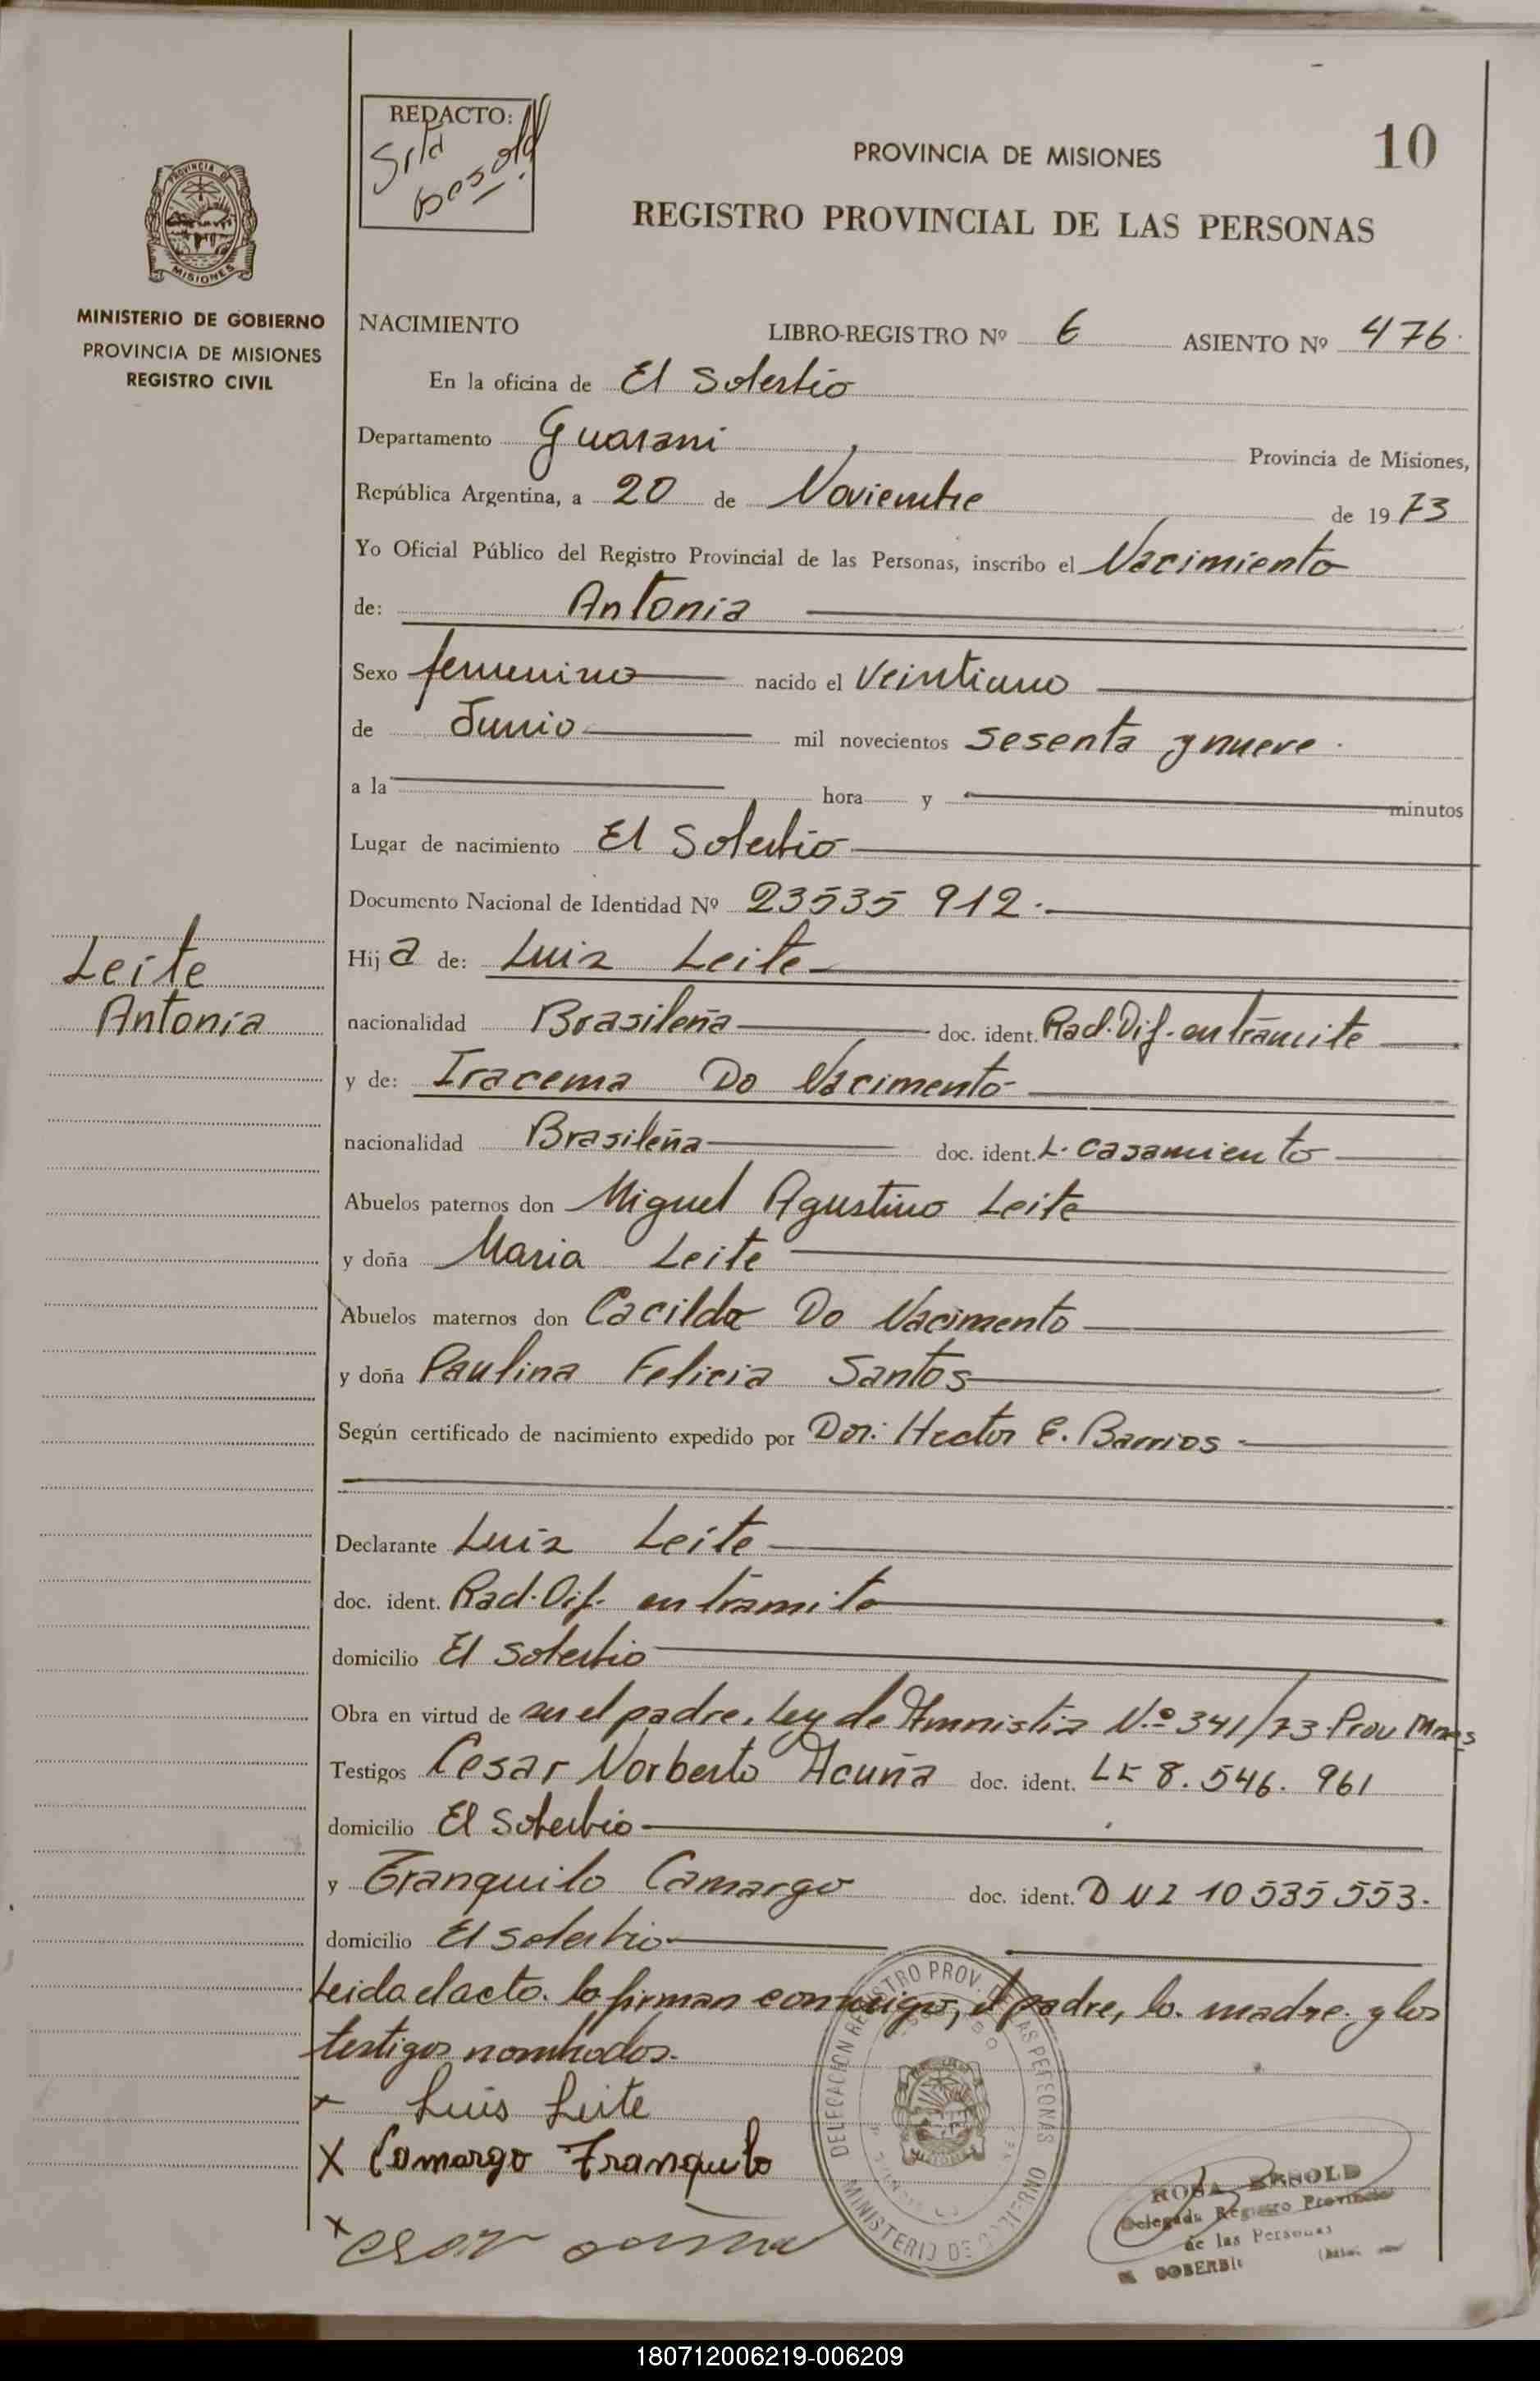 REDACTO:
Srta
Besold
10
PROVINCIA DE MISIONES
REGISTRO PROVINCIAL DE LAS PERSONAS
PROVINCIA DE
MISIONES
MINISTERIO DE GOBIERNO
PROVINCIA DE MISIONES
REGISTRO CIVIL
NACIMIENTO LIBRO-REGISTRO Nº 6 ASIENTO Nº 476.
En la oficina de El Soberbio
Departamento Guarani, Provincia de Misiones,
República Argentina, a 20 de Noviembre de 1973
Yo Oficial Público del Registro Provincial de las Personas, inscribo el Nacimiento
de: Antonia
Sexo femenino nacido el veintiuno
de Junio mil novecientos sesenta y nueve.
a la hora y minutos
Lugar de nacimiento El Soberbio
Documento Nacional de Identidad Nº 23535 912.
Leite
Antonia
Hija de: Luiz Leite
nacionalidad Brasileña doc. ident. Rad. Dif. en trámite
y de: Iracema Do Nacimento
nacionalidad Brasileña doc. ident. L. casamiento
Abuelos paternos don Miguel Agustino Leite
y doña Maria Leite
Abuelos maternos don Cacilda Do Nacimento
y doña Paulina Felicia Santos
Según certificado de nacimiento expedido por Dor: Hector E. Barrios
Declarante Luiz Leite
doc. ident. Rad. Dif. en tramite
domicilio El Soberbio
Obra en virtud de ser el padre. Ley de Amnistia N.º 341/73 Prov Mnes
Testigos Cesar Norberto Acuña doc. ident. LE 8.546.961
domicilio El Soberbio
y Tranquilo Camargo doc. ident. DNI 10 535 553.
domicilio El Soberbio
Leida el acto. lo firman conmigo, el padre, la madre y los
testigos nombrados.
x Luis Leite
X Camargo Tranquilo
x
DELEGACION REGISTRO PROV. DE LAS PERSONAS
MINISTERIO DE GOBIERNO
ROSA BESOLD
Delegada Registro Provincial
de las Personas
SOBERBIO
180712006219-006209